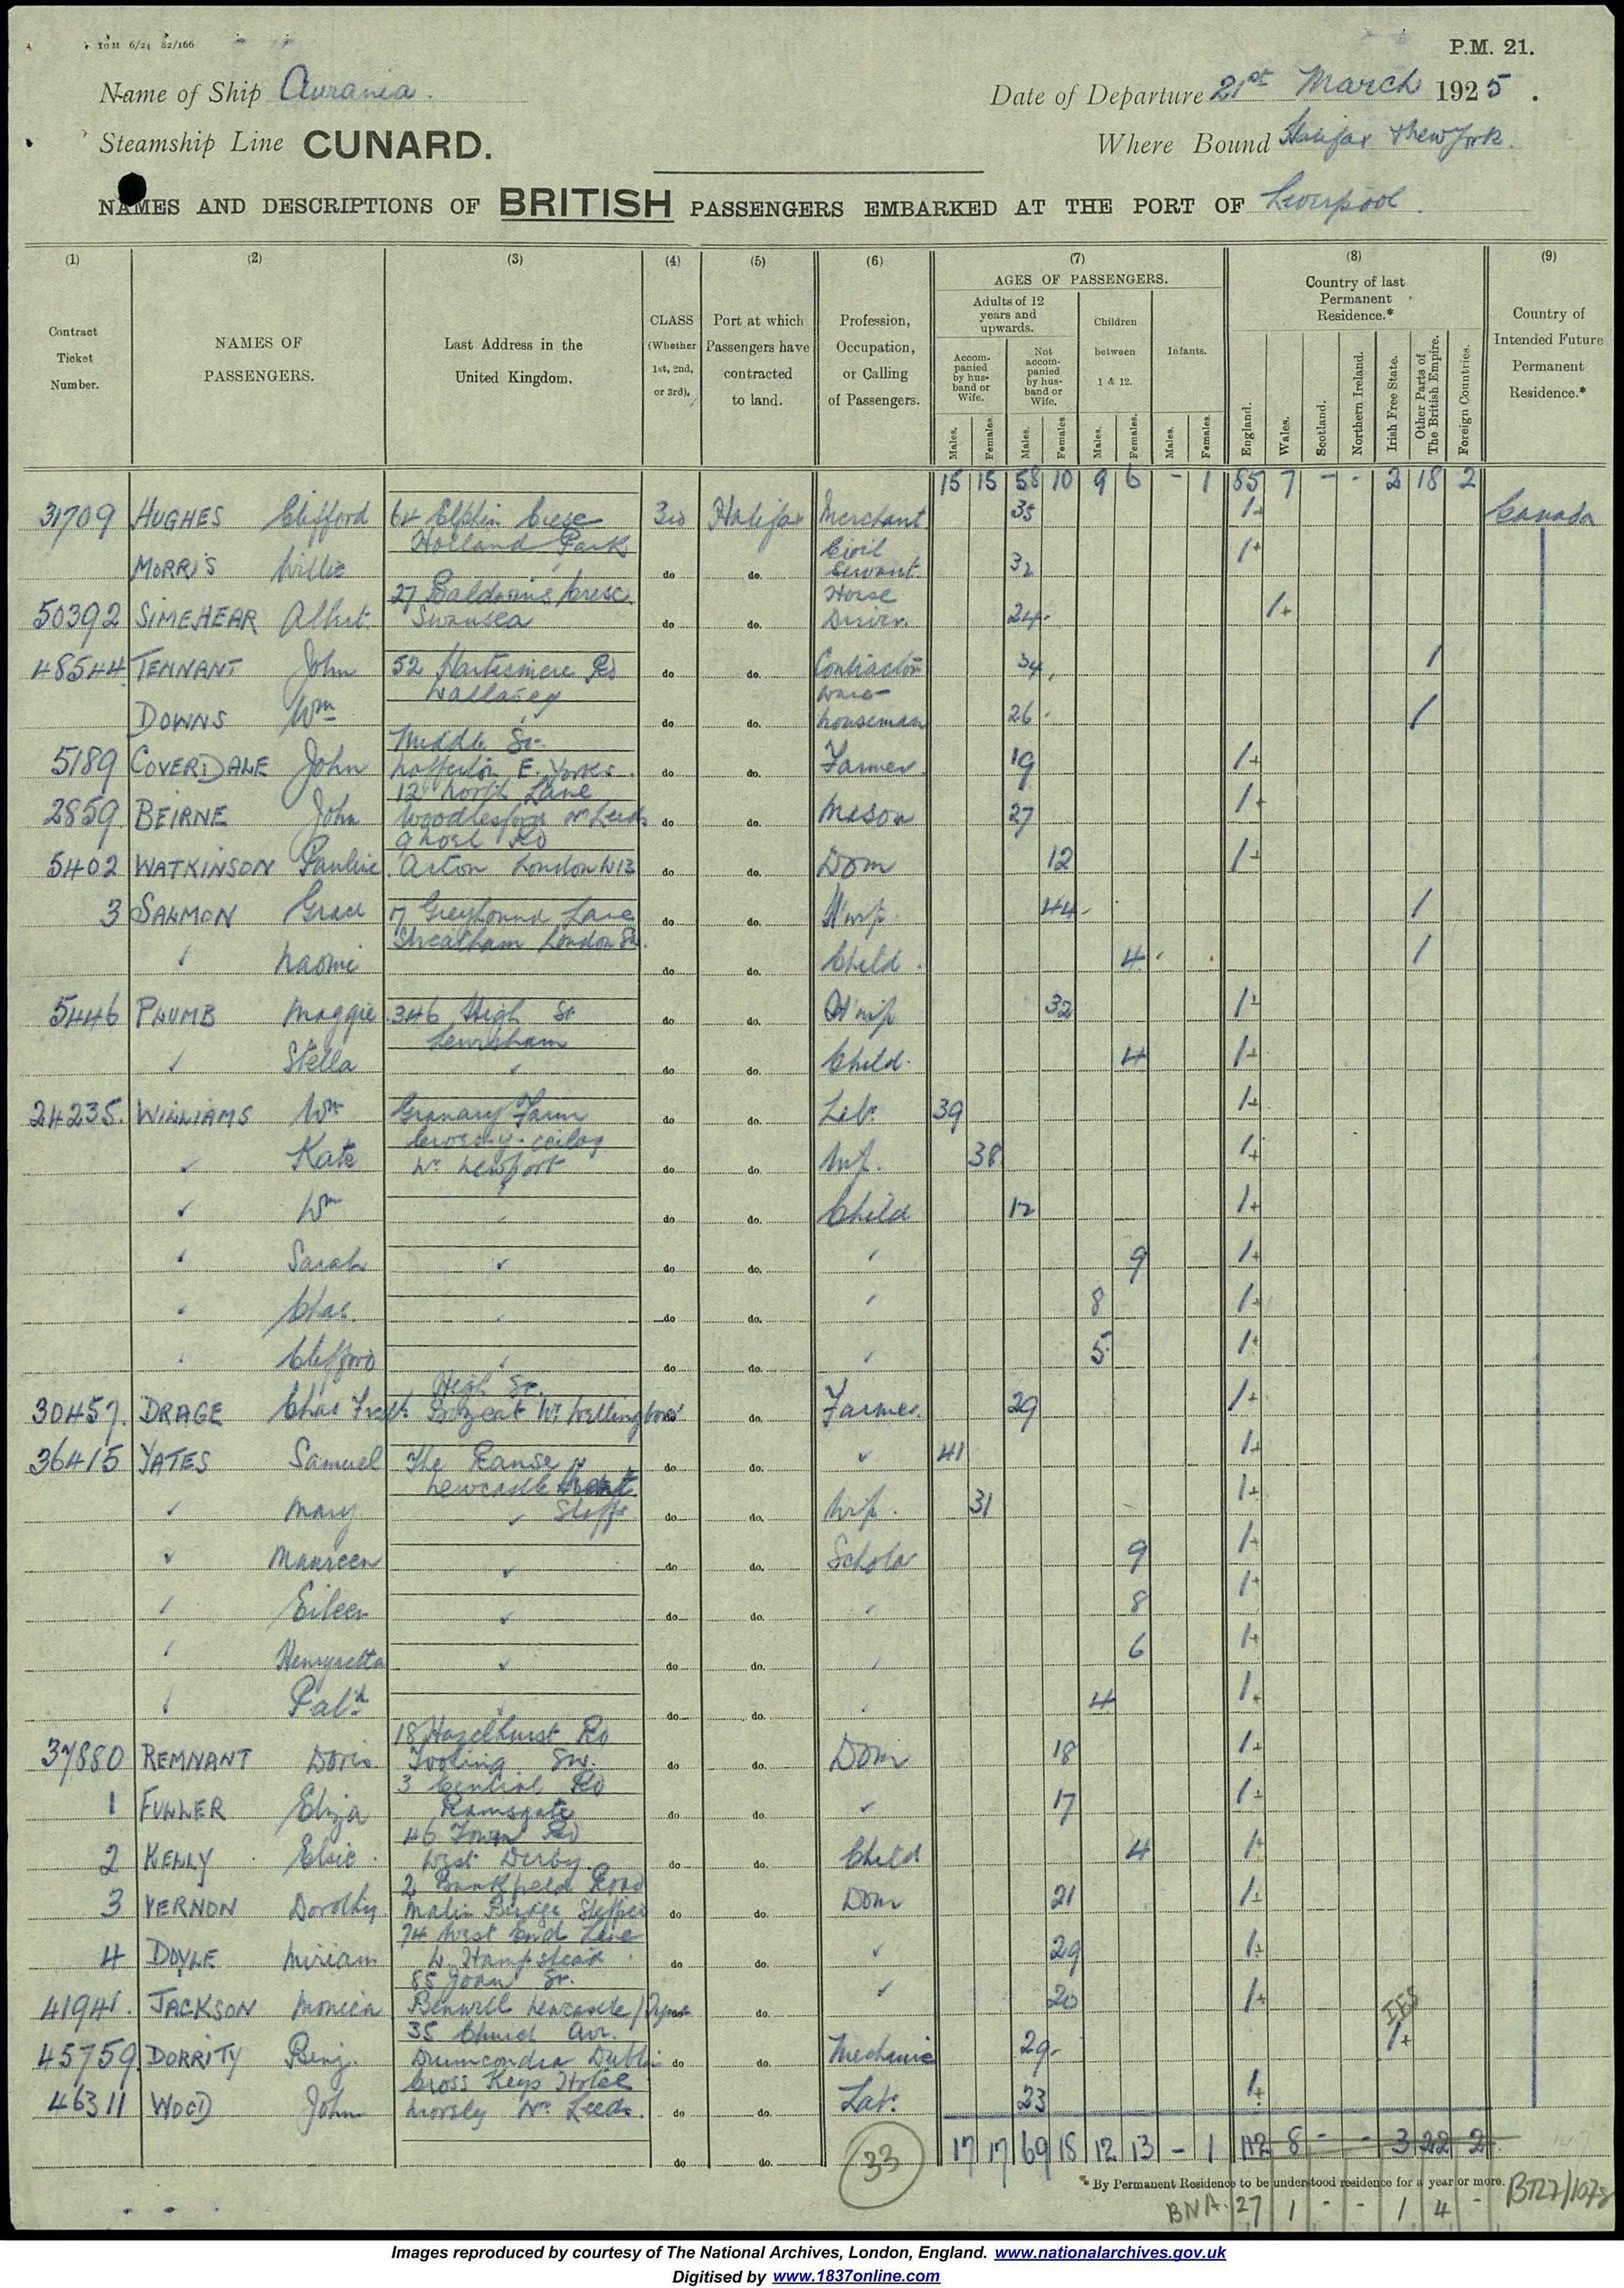 10M 6/24 82/166
P.M. 21.
Name of Ship Aurania.
Date of Departure 21st March 1925.
Steamship Line CUNARD.
Where Bound Halifax & New York.
NAMES AND DESCRIPTIONS OF BRITISH PASSENGERS EMBARKED AT THE PORT OF Liverpool.
(1) (2) (3) (4) (5) (6) (7) (8) (9)
Contract Ticket Number.
NAMES OF PASSENGERS.
Last Address in the United Kingdom.
CLASS (Whether 1st, 2nd, or 3rd).
Port at which Passengers have contracted to land.
Profession, Occupation, or Calling of Passengers.
AGES OF PASSENGERS.
Adults of 12 years and upwards.
Accompanied by husband or Wife.
Not accompanied by husband or Wife.
Children between 1 & 12.
Infants.
Males. Females. Males. Females. Males. Females. Males. Females.
Country of last Permanent Residence.*
England. Wales. Scotland. Northern Ireland. Irish Free State. Other Parts of The British Empire. Foreign Countries.
Country of Intended Future Permanent Residence.*
15 15 58 10 9 6 - 1 85 7 - - 2 18 2
31709 HUGHES Clifford 64 Elphin Cresc 3rd Halifax Merchant 35 1+ Canada
Holland Park
MORRIS Willie do do. Civil Servant. 32 1+
50392 SIMEHEAR Albert. 27 Baldwins Cresc. Swansea do do. Horse Driver. 24 1+
48544 TENNANT John 52 Hartismere Rd do do. Contractor 34 1
Wallasey
DOWNS Wm do do. Warehouseman 26 1
5189 COVERDALE John Middle St. Nafferton E. Yorks. do do. Farmer. 19 1+
2859 BEIRNE John 12 North Lane Woodlesford nr Leeds do do. Mason 27 1+
5402 WATKINSON Pauline Rd Acton London W13 do do. Dom 12 1+
3 SALMON Grace 17 Greyhound Lane do do. H'wife 44 1
Streatham London
" Naomi do do. Child. 4 1
5446 PLUMB Maggie 346 High St do do. H'wife 32 1+
Lewisham
" Stella do do. Child. 4 1+
24235. WILLIAMS Wm Granary Farm do do. Lab. 39 1+
" Kate Croes-y-ceilog Nr Newport do do. Wife. 38 1+
" Wm " do do. Child 12 1+
" Sarah " do do. " 9 1+
" Chas. " do do. " 8 1+
" Clifford " do do. " 5 1+
30457. DRAGE Chas Fredk High St. Bozeat Nr Wellingboro' do. Farmer. 29 1+
36415 YATES Samuel The do do. " 41 1+
Newcastle
" Mary " Staffs. do do. Wife. 31 1+
" Maureen " do do. Scholar 9 1+
" Eileen " do do. " 8 1+
" Henryretta " do do. " 6 1+
" Patk " do do. " 4 1+
37880 REMNANT Doris. 18 Hazelhurst Rd Tooting SW. do do. Dom 18 1+
1 FULLER Eliza 3 Central Rd Ramsgate do do. " 17 1+
2 KELLY Elsie. 46 Town Rd West Derby. do do. Child 4 1+
3 VERNON Dorothy 2 Bankfield Road Malin Bridge Sheffield do do. Dom 21 1+
4 DOYLE Miriam 74 West End Lane W. Hampstead do do. " 29 1+
41941. JACKSON Monica 85 Joan St. Benwell Newcastle/Tyne do. " 20 1+
IFS
45759 DORRITY Benj. 35 Church Av. Drumcondra Dublin do do. Mechanic 29. 1+
46311 WOOD John Cross Keys Hotel Morley Nr. Leeds. do do. Lab. 23 1+
do do. 33 17 17 69 18 12 13 - 1 112 8 - - 3 22 2
* By Permanent Residence to be understood residence for a year or more.
BNA. 27 1 - - 1 4 -
BT27/1078
Images reproduced by courtesy of The National Archives, London, England. www.nationalarchives.gov.uk
Digitised by www.1837online.com